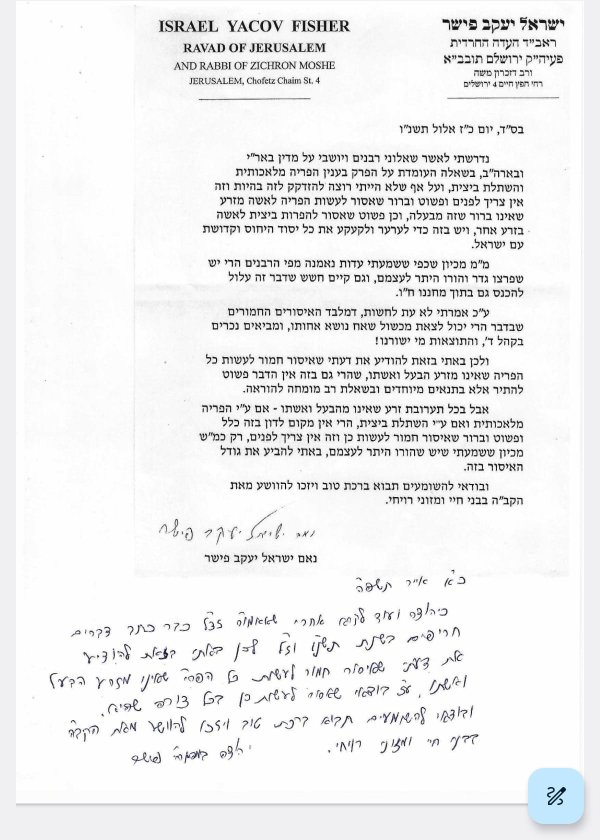 ISRAEL YACOV FISHER
RAVAD OF JERUSALEM
AND RABBI OF ZICHRON MOSHE
JERUSALEM, Chofetz Chaim St. 4
ישראל יעקב פישר
ראב״ד העדה החרדית
פעיה״ק ירושלם תובב״א
ורב דזכרון משה
רחי חפץ חיים 4 ירושלים
בס״ד, יום כ״ז אלול תשנ״ו
נדרשתי לאשר שאלוני רבנים ויושבי על מדין באר״י
ובארה״ב, בשאלה העומדת על הפרק בענין הפריה מלאכותית
והשתלת ביצית, ועל אף שלא הייתי רוצה להזדקק לזה בהיות וזה
אין צריך לפנים ופשוט וברור שאסור לעשות הפריה לאשה מזרע
שאינו ברור שזה מבעלה, וכן פשוט שאסור להפרות ביצית לאשה
בזרע אחר, ויש בזה כדי לערער ולקעקע את כל יסוד היחוס וקדושת
עם ישראל.
מ״מ מכיון שכפי ששמעתי עדות נאמנה מפי הרבנים הרי יש
שפרצו גדר והורו היתר לעצמם, וגם קיים חשש שדבר זה עלול
להכנס גם בתוך מחננו ח״ו.
ע״כ אמרתי לא עת לחשות, דמלבד האיסורים החמורים
שבדבר הרי יכול לצאת מכשול שאח נושא אחותו, ומביאים נכרים
בקהל ד׳, והתוצאות מי ישורנו!
ולכן באתי בזאת להודיע את דעתי שאיסור חמור לעשות כל
הפריה שאינו מזרע הבעל ואשתו, שהרי גם בזה אין הדבר פשוט
להתיר אלא בתנאים מיוחדים ובשאלת רב מומחה להוראה.
אבל בכל תערובת זרע שאינו מהבעל ואשתו - אם ע״י הפריה
מלאכותית ואם ע״י השתלת ביצית, הרי אין מקום לדון בזה כלל
ופשוט וברור שאיסור חמור לעשות כן וזה אין צריך לפנים, רק כמ״ש
מכיון ששמעתי שיש שהורו היתר לעצמם, באתי להביע את גודל
האיסור בזה.
ובודאי להשומעים תבוא ברכת טוב ויזכו להוושע מאת
הקב״ה בבני חיי ומזוני רויחי.
ישראל יעקב פישר
נאם ישראל יעקב פישר
כ״א אייר תשפ״ה
כיהודה ועוד לקרא אחרי שאאמו״ר זצ״ל כבר כתב דברים
חריפים בשנת תשנ״ו וז״ל לכן באתי בזאת להודיע
את דעתי שאיסור חמור לעשות כל הפריה שאינו מזרע הבעל
ואשתו, עכ״ל בודאי שאסור לעשות כן בכל צורה שהיא.
ובודאי להשומעים תבוא ברכת טוב ויזכו להוושע מאת הקב״ה
בבני חיי ומזוני רויחי.